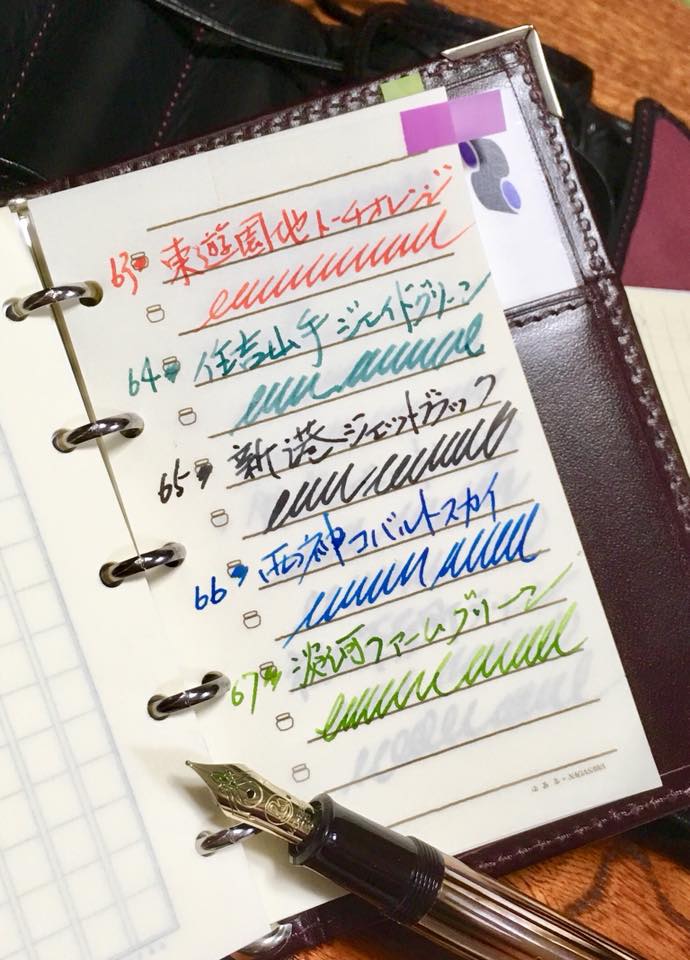 63 東遊園地トーチオレンジ
64 住吉山手ジェイドグリーン
65 新港ジェットブラック
66 西神コバルトスカイ
67 淡河ファームグリーン